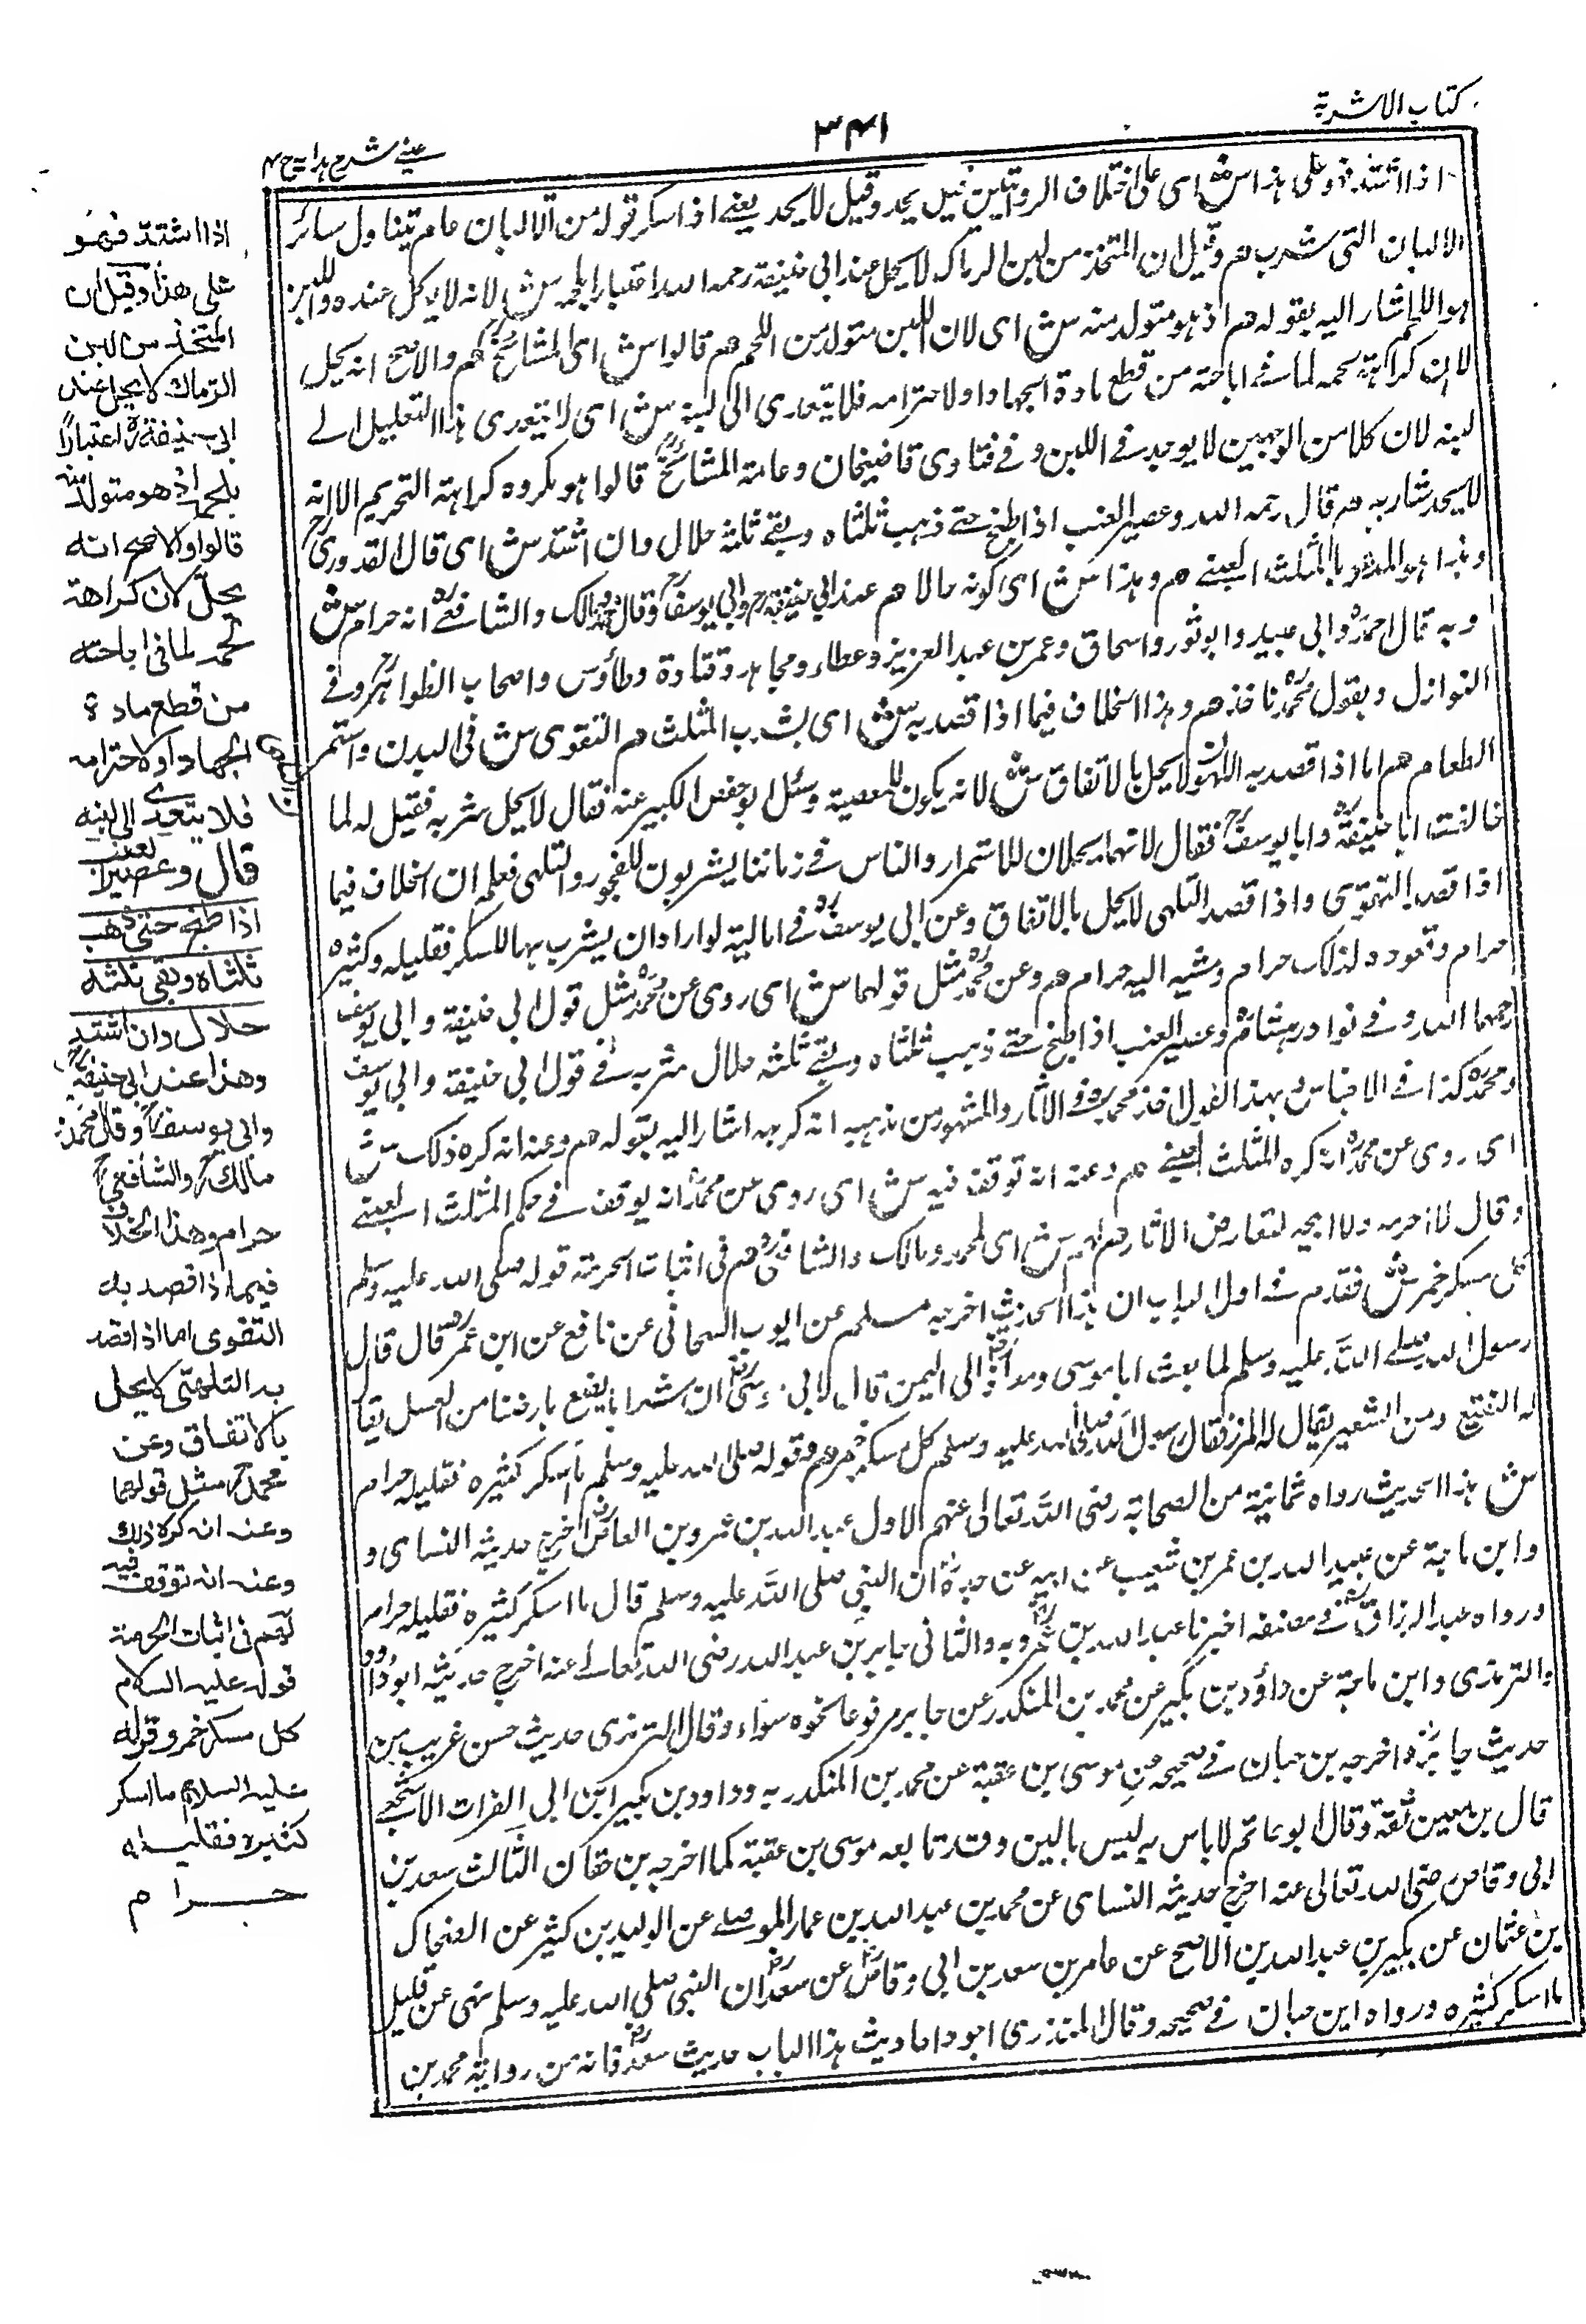 كتاب الاشربة
٣٤١
عينے شرح ہدایہ ج ۴
اذا اشتد فهو على هذا ش اى على اختلاف الروايتين قيل يحد وقيل لا يحد يعنے اذا سكر قوله من الالبان عام يتناول سائر
الالبان التى شرب هم وقيل ان المتخذ من لبن الرماك لا يحل عند ابى حنيفة رحمه الله اعتبارا بلحمه ش لانه لا يوكل عنده واللبن
هو اللحم اشار اليه بقوله هم اذ هو متولد منه ش اى لان اللبن متولد من اللحم هم قالوا ش اى المشائخ هم والاصح انه يحل
لان كراهة لحمه لما فے اباحته من قطع مادة الجهاد او لاحترامه فلا يتعدى الى لبنه ش اى لا يتعدى هذا التعليل الے
لبنه لان كلا من الوجهين لا يوجد فے اللبن وفے فتاوى قاضيخان وعامة المشائخ قالوا هو مكروه كراهة التحريم الا انه
لا يحد شاربه هم قال رحمه الله وعصير العنب اذا طبخ حتے ذهب ثلثاه وبقے ثلثه حلال وان اشتد ش اى قال القدورى
وهذا هو المثلث العنبے هم وهذا ش اى كونه حلالا هم عند ابى حنيفة وابى يوسف وقال محمد ومالك والشافعے انه حرام ش
وبه قال احمد وابى عبيد وابو ثور واسحاق وعمر بن عبد العزيز وعطاء ومجاهد وقتادة وطاؤس واصحاب الظواهر وفے
النوازل وبقول محمد ناخذ هم وهذا الخلاف فيما اذا قصد به ش اى بشرب المثلث هم التقوى ش فى البدن واستمر
الطعام هم اما اذا قصد به التلهى لا يحل بالاتفاق ش لانه يكون للمعصية وسئل ابو حفص الكبير عنه فقال لا يحل شربه فقيل له لما
خالفت ابا حنيفة وابا يوسف فقال لانهما يحلان للاستمرار والناس فے زماننا يشربون للفجور والتلهى فعلم ان الخلاف فيما
اذا قصد التقوى واذا قصد التلهى لا يحل بالاتفاق وعن ابى يوسف فے اماليه لو اراد ان يشرب بها للسكر فقليله وكثيره
حرام وقعوده لذلك حرام ومشيه اليه حرام هم وعن محمد مثل قولهما ش اى روى عن محمد مثل قول ابى حنيفة وابى يوسف
رحمهما الله وفے نوادر هشام وعصير العنب اذا طبخ حتے ذهب ثلثاه وبقے ثلثه حلال شربه فے قول ابى حنيفة وابى يوسف
ومحمد كذا فے الاجناس وبهذا القول اخذ محمد فے الآثار والمشهور من مذهبه انه كرهه اشار اليه بقوله هم وعنه انه كره ذلك ش
اى روى عن محمد انه كره المثلث العنبے هم وعنه انه توقف فيه ش اى روى عن محمد انه يوقف فے حكم المثلث العنبے
وقال لا احرمه ولا ابيحه لتعارض الآثار هم لهم ش اى لمحمد ومالك والشافعى هم فى اثبات الحرمة قوله صلى الله عليه وسلم
كل مسكر خمر ش فقدم فے اول الباب ان هذا الحديث اخرجه مسلم عن ايوب السختيانى عن نافع عن ابن عمر قال قال
رسول الله صلے الله عليه وسلم لما بعث ابا موسى ومعاذ الى اليمن قال لابى موسى ان شرابا يصنع بارضنا من العسل يقال
له البتع ومن الشعير يقال له المزر فقال رسول الله صلى الله عليه وسلم كل مسكر حرام هم وقوله صلى الله عليه وسلم ما اسكر كثيره فقليله حرام
ش هذا الحديث رواه ثمانية من الصحابة رضى الله تعالى عنهم الاول عبد الله بن عمرو بن العاص اخرج حديثه النساى و
وابن ماجة عن عبيد الله بن عمر بن شعيب عن ابيه عن جده ان النبى صلى الله عليه وسلم قال ما اسكر كثيره فقليله حرام
ورواه عبد الرزاق فے مصنفه اخبرنا عبد الله بن عمر وبه والثانى جابر بن عبد الله رضى الله تعالے عنه اخرج حديثه ابو داود
والترمذى وابن ماجة عن داؤد بن بكير عن محمد بن المنكدر عن جابر مرفوعا نحوه سواء وقال الترمذى حديث حسن غريب من
حديث جابر واخرجه بن حبان فے صحيحه عن موسى بن عقبة عن محمد بن المنكدر به وداود بن بكير ابن ابى الفرات الاشجعے
قال بن معين ثقة وقال ابو حاتم لا باس به ليس بالمين وقد تابعه موسى بن عقبة كما اخرجه بن حبان الثالث سعد بن
ابى وقاص رضى الله تعالى عنه اخرج حديثه النساى عن محمد بن عبد الله بن عمار الموصلے عن الوليد بن كثير عن الضحاك
بن عثمان عن بكير بن عبد الله بن الاشج عن عامر بن سعد بن ابى وقاص عن سعد ان النبى صلى الله عليه وسلم نهى عن قليل
ما اسكر كثيره ورواه ابن حبان فے صحيحه وقال المنذرى اجود احاديث هذا الباب حديث سعد فانه من رواية محمد بن
اذا اشتد فهو
على هذا وقيل ان
المتخذ من لبن
الرماك لا يحل عند
ابى حنيفة اعتبارا
بلحمه اذ هو متولد منه
قالوا والاصح انه
يحل لان كراهة
لحمه لما فى اباحته
من قطع مادة
الجهاد او لاحترامه
فلا يتعدى الى لبنه
قال وعصير العنب
اذا طبخ حتى ذهب
ثلثاه وبقى ثلثه
حلال وان اشتد
وهذا عند ابى حنيفة
وابى يوسف وقال محمد
مالك والشافعى
حرام وهذا الخلاف
فيما اذا قصد به
التقوى اما اذا قصد
به التلهى لا يحل
بالاتفاق وعن
محمد مثل قولهما
وعنه انه كره ذلك
وعنه انه توقف فيه
لهم فى اثبات الحرمة
قوله عليه السلام
كل مسكر خمر وقوله
عليه السلام ما اسكر
كثيره فقليله
حرام